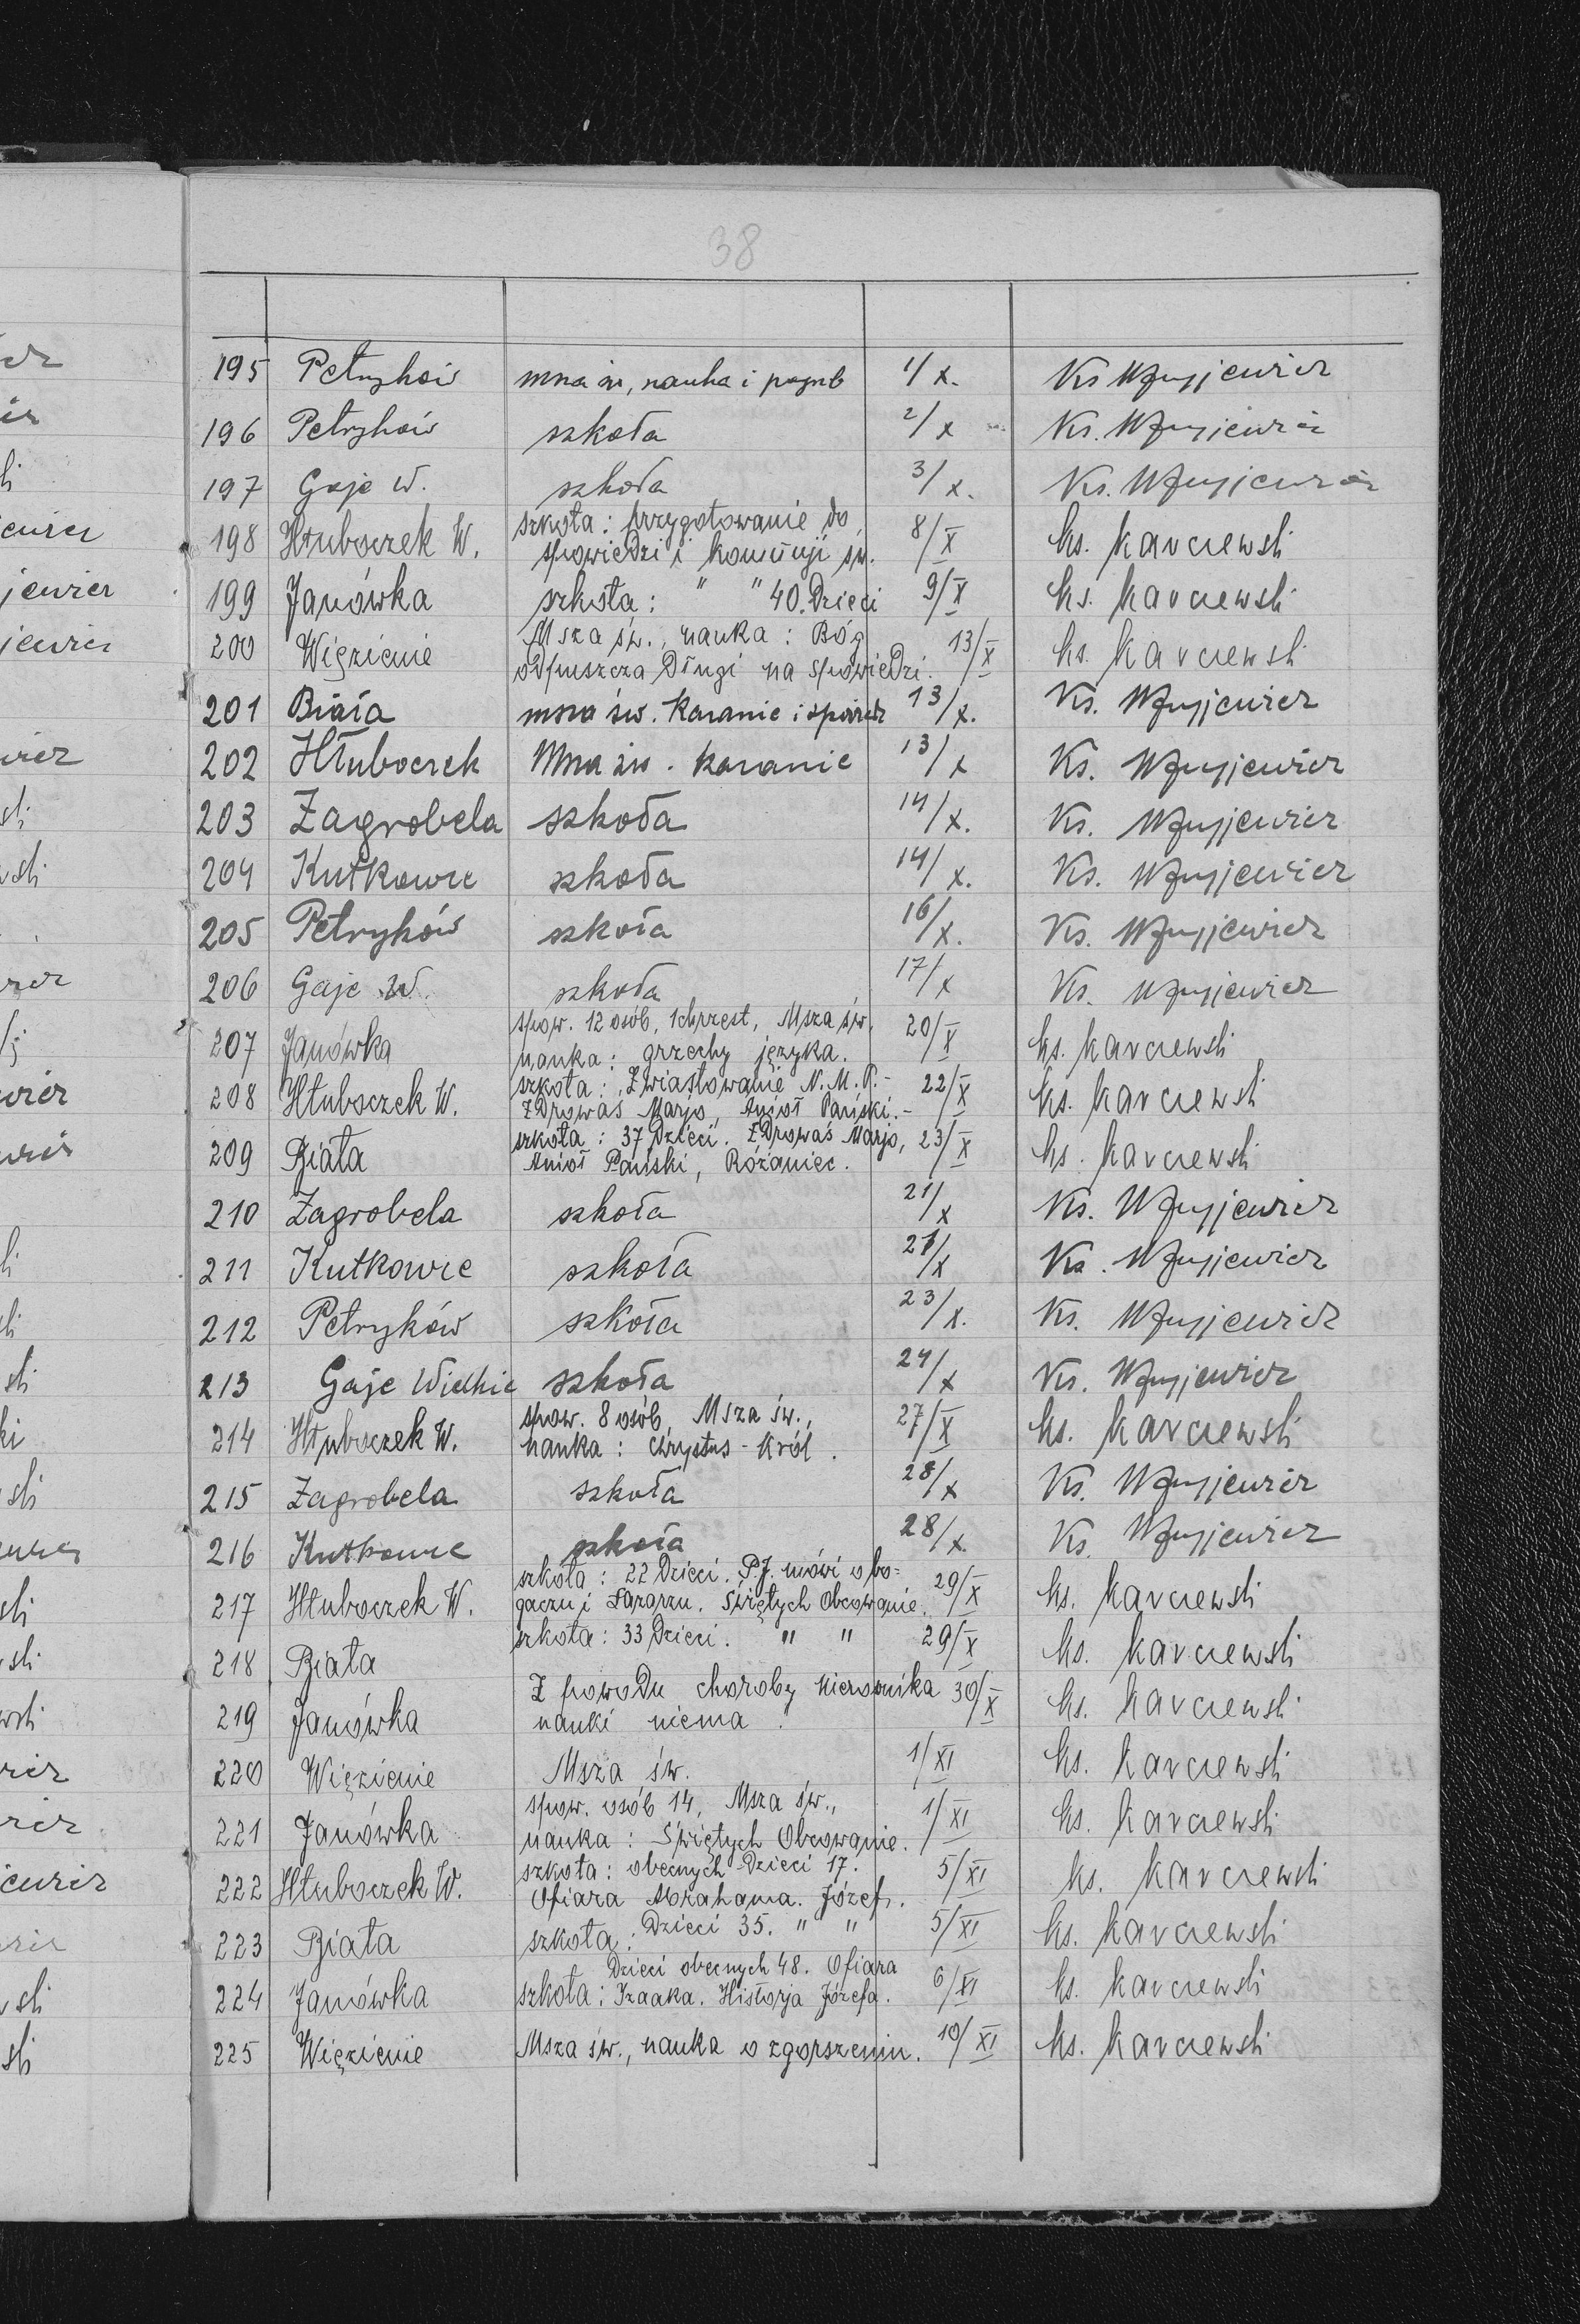 38
195 Petryków msza św, nauka i pogrzeb 1/X. Ks
196 Petryków szkoła 2/X Ks.
197 Gaje W. szkoła 3/X. Ks.
198 Hłuboczek W. szkoła: przygotowanie do
spowiedzi i komunji św. 8/X ks. Karczewski
199 Janówka szkoła: " " 40. Dzieci 9/X ks. Karczewski
200 Więzienie Msza św., nauka: Bóg
odpuszcza Długi na spowiedzi. 13/X ks. Karczewski
201 Biała msza św. Kazanie i 13/X. Ks.
202 Hłuboczek Msza św. Kazanie 13/X Ks.
203 Zagrobela szkoła 14/X. Ks.
204 Kutkowce szkoła 14/X. Ks.
205 Petryków szkoła 16/X. Ks.
206 Gaje W. szkoła 17/X Ks.
207 Janówka spow. 12 osób, 1 chrzest, Msza św.
nauka: grzechy języka. 20/X ks. Karczewski
208 Hłuboczek W. szkoła: Zwiastowanie N. M. P. -
Zdrowaś Marjo, Anioł Pański. - 22/X ks. Karczewski
209 Biała szkoła: 37 Dzieci. Zdrowaś Marjo,
Anioł Pański, Różaniec. 23/X ks. Karczewski
210 Zagrobela szkoła 21/X Ks.
211 Kutkowce szkoła 21/X Ks.
212 Petryków szkoła 23/X. Ks.
213 Gaje Wielkie szkoła 24/X Ks.
214 Hłuboczek W. spow. 8 osób, Msza św.,
nauka: Chrystus - Król. 27/X ks. Karczewski
215 Zagrobela szkoła 28/X Ks.
216 Kutkowce szkoła 28/X. Ks.
217 Hłuboczek W. szkoła: 22 Dzieci. P.J. mówi o bo=
gaczu i Łazarzu. Świętych Obcowanie. 29/X ks. Karczewski
218 Biała szkoła: 33 Dzieci. " " 29/X ks. Karczewski
219 Janówka Z powodu choroby kierownika
nauki niema. 30/X ks. Karczewski
220 Więzienie Msza św. 1/XI ks. Karczewski
221 Janówka spow. osób 14, Msza św.,
nauka: Świętych Obcowanie. 1/XI ks. Karczewski
222 Hłuboczek W. szkoła: obecnych Dzieci 17.
Ofiara Abrahama. Józef. 5/XI ks. Karczewski
223 Biała szkoła: Dzieci 35. " " 5/XI ks. Karczewski
224 Janówka Dzieci obecnych 48. Ofiara
szkoła: Izaaka. Historja Józefa. 6/XI ks. Karczewski
225 Więzienie Msza św., nauka o zgorszeniu. 10/XI ks. Karczewski